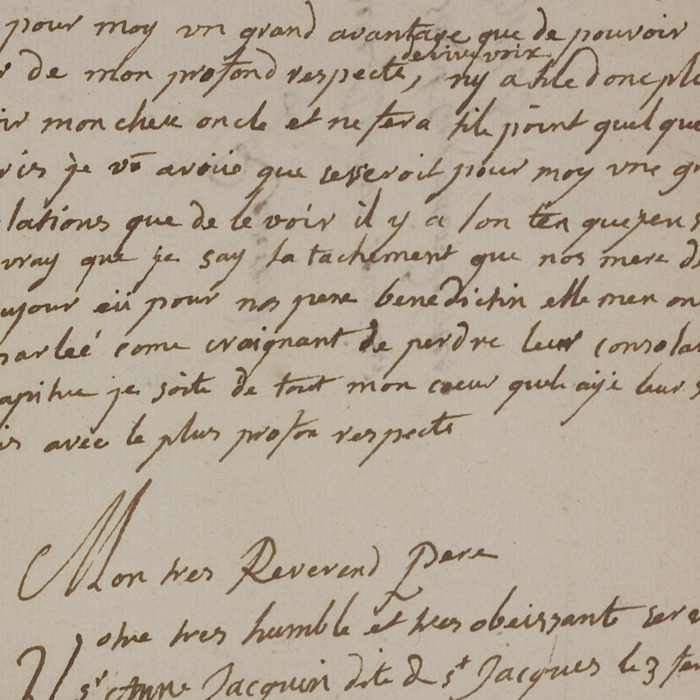 pour moy vn grand avantage que de pouvoir
de vive voix
r de mon profond respecte, ny a tile donc plu
oir mon cher oncle et ne sera tile point quelque
ris je vō avoüe que ce seroit pour moy vne gr
lations que de le voir il y a lon ten que jen s
vray que je say la tachement que nos mere d
ujour eü pour nos pere benedictin elle men on
parleé come craignant de perdre leur consola
apitre je soite de tout mon coeur quele aije leur s
is avec le plus profon respecte
Mon tres Reverend Pere
Votre tres humble et tres obeissante serv
sr Anne Jacquin dite de st Jacques le 3